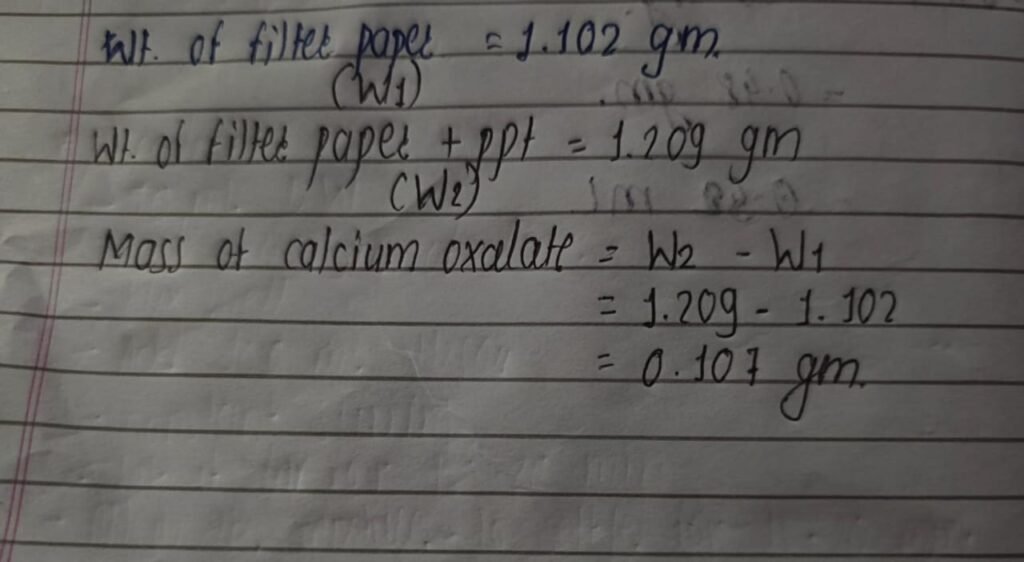 Wt. of filter paper = 1.102 gm.
(W1)
Wt. of filter paper + ppt = 1.209 gm
(W2)
Mass of calcium oxalate = W2 - W1
= 1.209 - 1.102
= 0.107 gm.